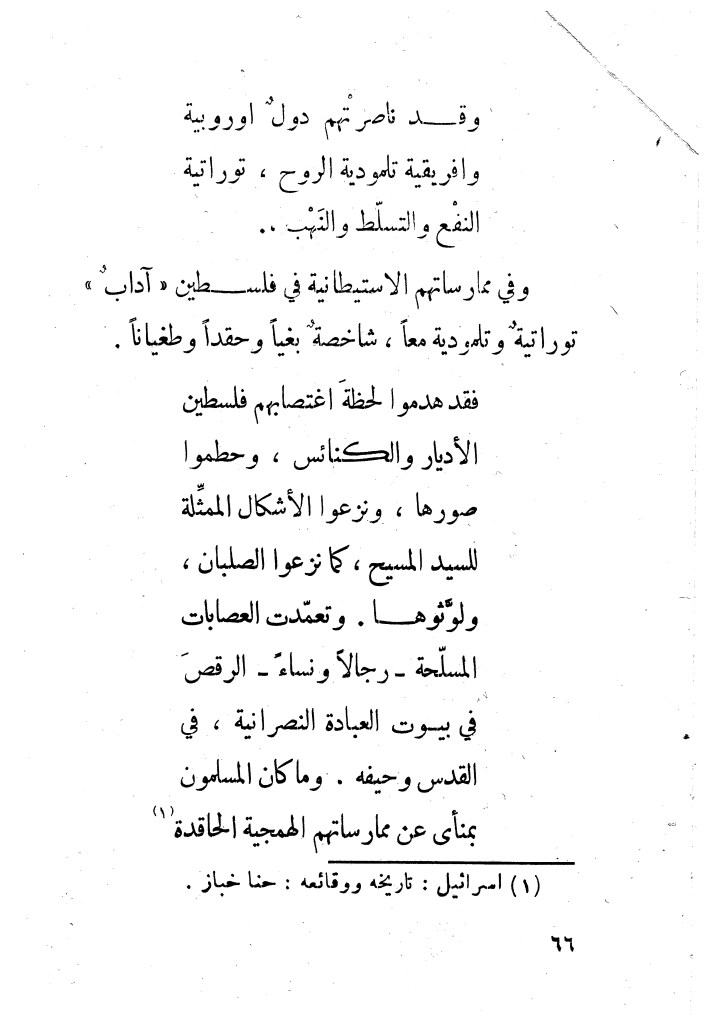 وقـــد ناصرتْهم دولٌ اوروبية
وافريقية تلمودية الروح ، توراتية
النفْع والتسلّط والنَهْب ..
وفي ممارساتهم الاستيطانية في فلســـطين « آدابٌ »
توراتيةٌ وتلمودية معاً ، شاخصةٌ بغياً وحقداً وطغياناً .
فقد هدموا لحظةَ اغتصابهم فلسطين
الأديار والكنائس ، وحطموا
صورها ، ونزعوا الأشكال الممثِّلة
للسيد المسيح ، كما نزعوا الصلبان ،
ولوَّثوهـــا . وتعمّدت العصابات
المسلّحة - رجالاً ونساءً - الرقصَ
في بيــوت العبادة النصرانية ، في
القدس وحيفه . وما كان المسلمون
بمنأى عن ممارساتهم الهمجية الحاقدة (١)
(١) اسرائيل : تاريخه ووقائعه : حنا خباز .
٦٦